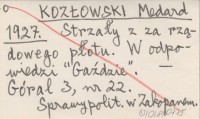 KOZŁOWSKI Medard
1927. Strzały z za rzą-
dowego płotu. W odpo-
wiedzi "Gaździe". —
Góral 3, nr 22.
Sprawy polit. w Zakopanem.